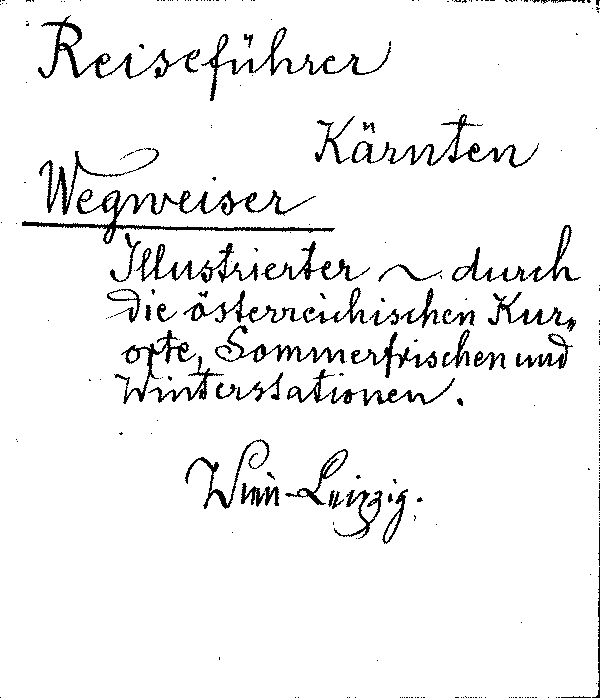 Reiseführer
Kärnten
Wegweiser
Illustrierter ~ durch
die österreichischen Kur-
orte, Sommerfrischen und
Winterstationen.
Wien-Leipzig.